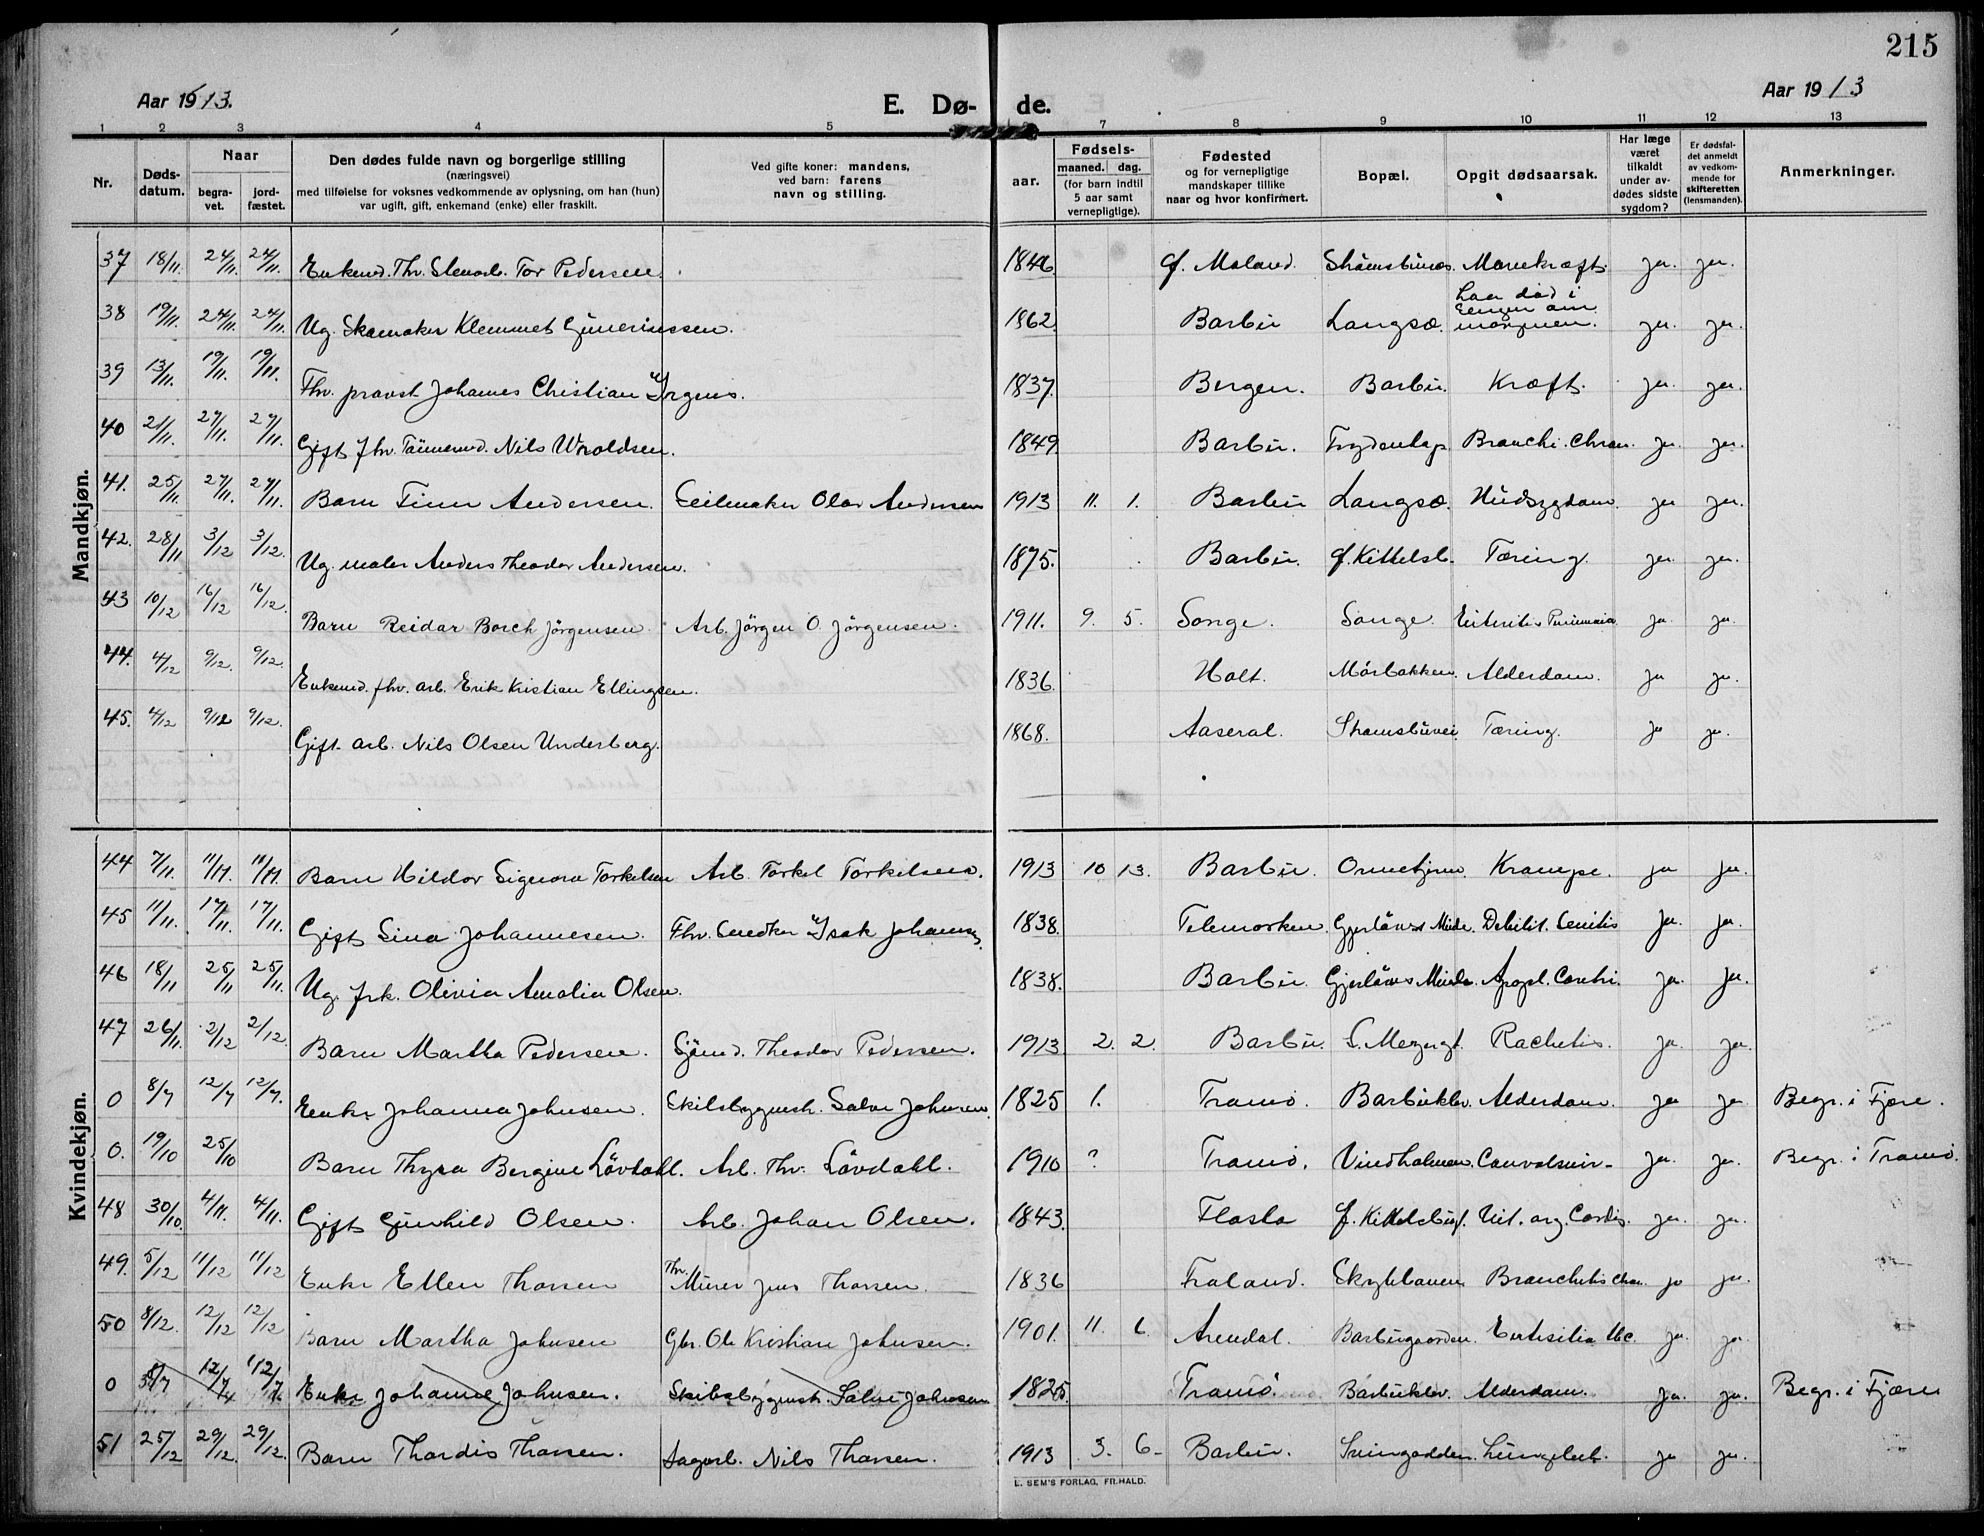 215
Aar 1913.
E. Dø-
de.
Aar 1913
1 2 3 4 5 7 8 9 10 11 12 13
Nr.
Døds-
datum.
Naar
begra-
vet.
jord-
fæstet.
Den dødes fulde navn og borgerlige stilling
(næringsvei)
med tilføielse for voksnes vedkommende av oplysning, om han (hun)
var ugift, gift, enkemand (enke) eller fraskilt.
Ved gifte koner: mandens,
ved barn: farens
navn og stilling.
aar.
Fødsels-
maaned. dag.
(for barn indtil
5 aar samt
vernepligtige).
Fødested
og for vernepligtige
mandskaper tillike
naar og hvor konfirmert.
Bopæl.
Opgit dødsaarsak.
Har læge
været
tilkaldt
under av-
dødes sidste
sygdom?
Er dødsfal-
det anmeldt
av vedkom-
mende for
skifteretten
(lensmanden).
Anmerkninger.
Mandkjøn.
37 18/11. 24/11. 24/11. Enkemd. Thv. Tor Pedersen. 1846. Moland. Mavekræft. ja. ja.
38 19/11. 24/11. 24/11. Ug. Skomaker Klemmet 1862. Barbu Langsæ. Laa død i Sengen om morgenen. ja. ja.
39 13/11. 19/11. 19/11. Fhv. provst Johannes Christian Irgens. 1837. Bergen. Barbu. Kræft. ja. ja.
40 21/11. 27/11. 27/11. Gift fhv. Nils Woldsen. 1849. Barbu. Bronchi. Chron. ja. ja.
41. 25/11. 27/11. 27/11. Barn Finn Andersen. Seilmaker Olav Andersen 1913 11. 1. Barbu Langsæ. Hudsygdom. ja ja.
42. 28/11 3/12 3/12. Ug. maler Anders Theodor Andersen. 1875. Barbu. Kittelsb. Tæring. ja. ja.
43 10/12 16/12 16/12. Barn Reidar Borch Jörgensen. Arb. Jörgen O. Jörgensen. 1911. 9. 5. Songe. Songe. ja. ja.
44. 4/12 9/12. 9/12. Enkemd. fhv. arb. Erik Kristian Ellingsen. 1836. Holt. Mörbakken. Alderdom. ja ja.
45. 4/12 9/12 9/12. Gift arb. Nils Olsen Underberg. 1868. Aaseral. Tæring. ja ja.
Kvindekjøn.
44 7/11. 11/11. 11/11. Barn Hildor Signora Torkelsen Arb. Torkel Torkelsen. 1913 10 13. Barbu. Krampe. ja ja.
45 11/11. 17/11. 17/11. Gift Sina Johannesen. Fhv. Snedker Isak Johannsen. 1838. Telemarken. Gjerlöws Minde. Debilit. Senilis ja. ja.
46 18/11 25/11 25/11. Ug. frk. Olivia Amalia Olsen. 1838. Barbu. Gjerlöws Minde. ja. ja.
47 26/11. 2/12 2/12. Barn Martha Pedersen. Sjömd. Theodor Pedersen. 1913 2. 2. Barbu. Rachitis. ja. ja.
0 8/7 12/7 12/7. Enke Johanna Johnsen. Skibsbygmstr. Salve Johnsen. 1825 1. Tromö. Barbuklev. Alderdom. ja ja. Begr. i Fjære.
0. 19/10 25/10 Barn Thyra Bergine Lövdahl. Arb. Thv. Lövdahl. 1910 ? Tromö. Vindholmen. ja. ja. Begr. i Tromö.
48 30/10. 4/11. 4/11. Gift Gunhild Olsen. Arb. Johan Olsen. 1843. Flosta Vit. org. Cordis. ja. ja.
49. 5/12 11/12 11/12 Enke Ellen Thorsen Fhv. Murer Jens Thorsen. 1836 Froland. Bronchitis chron. ja ja.
50 8/12. 12/12 12/12 Barn Martha Johnsen Gbr. Ole Kristian Johnsen. 1901. 11. 6. Arendal. Barbugaarden. ja. ja.
0 12/7 12/7 Enke Johanne Johnsen. Skibsbygmstr. Salve Johnsen 1825. Tromö. Barbuklev. Alderdom. ja. ja. Begr. i Fjære
51 25/12 29/12. 29/12. Barn Thordis Thorsen. Sagarb. Nils Thorsen. 1913 3. 6. Barbu. ja ja.
L. SEM'S FORLAG, FR.HALD.